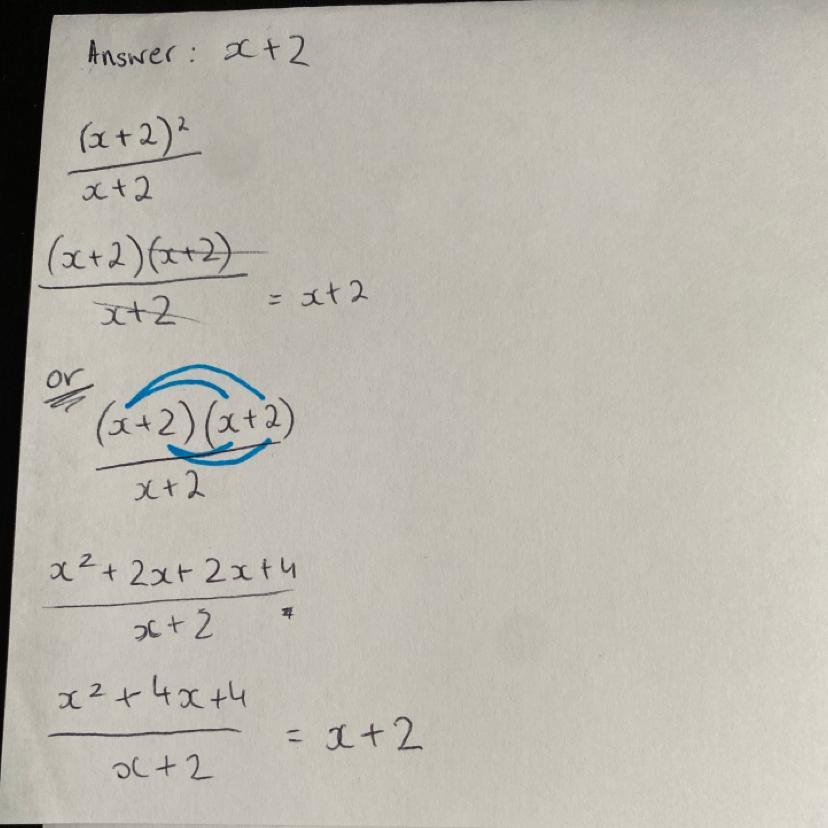 Answer: x+2
(x+2)²
x+2
(x+2)(x+2)
x+2
= x+2
or
(x+2)(x+2)
x+2
x²+2x+2x+4
x+2
x²+4x+4
x+2
= x+2